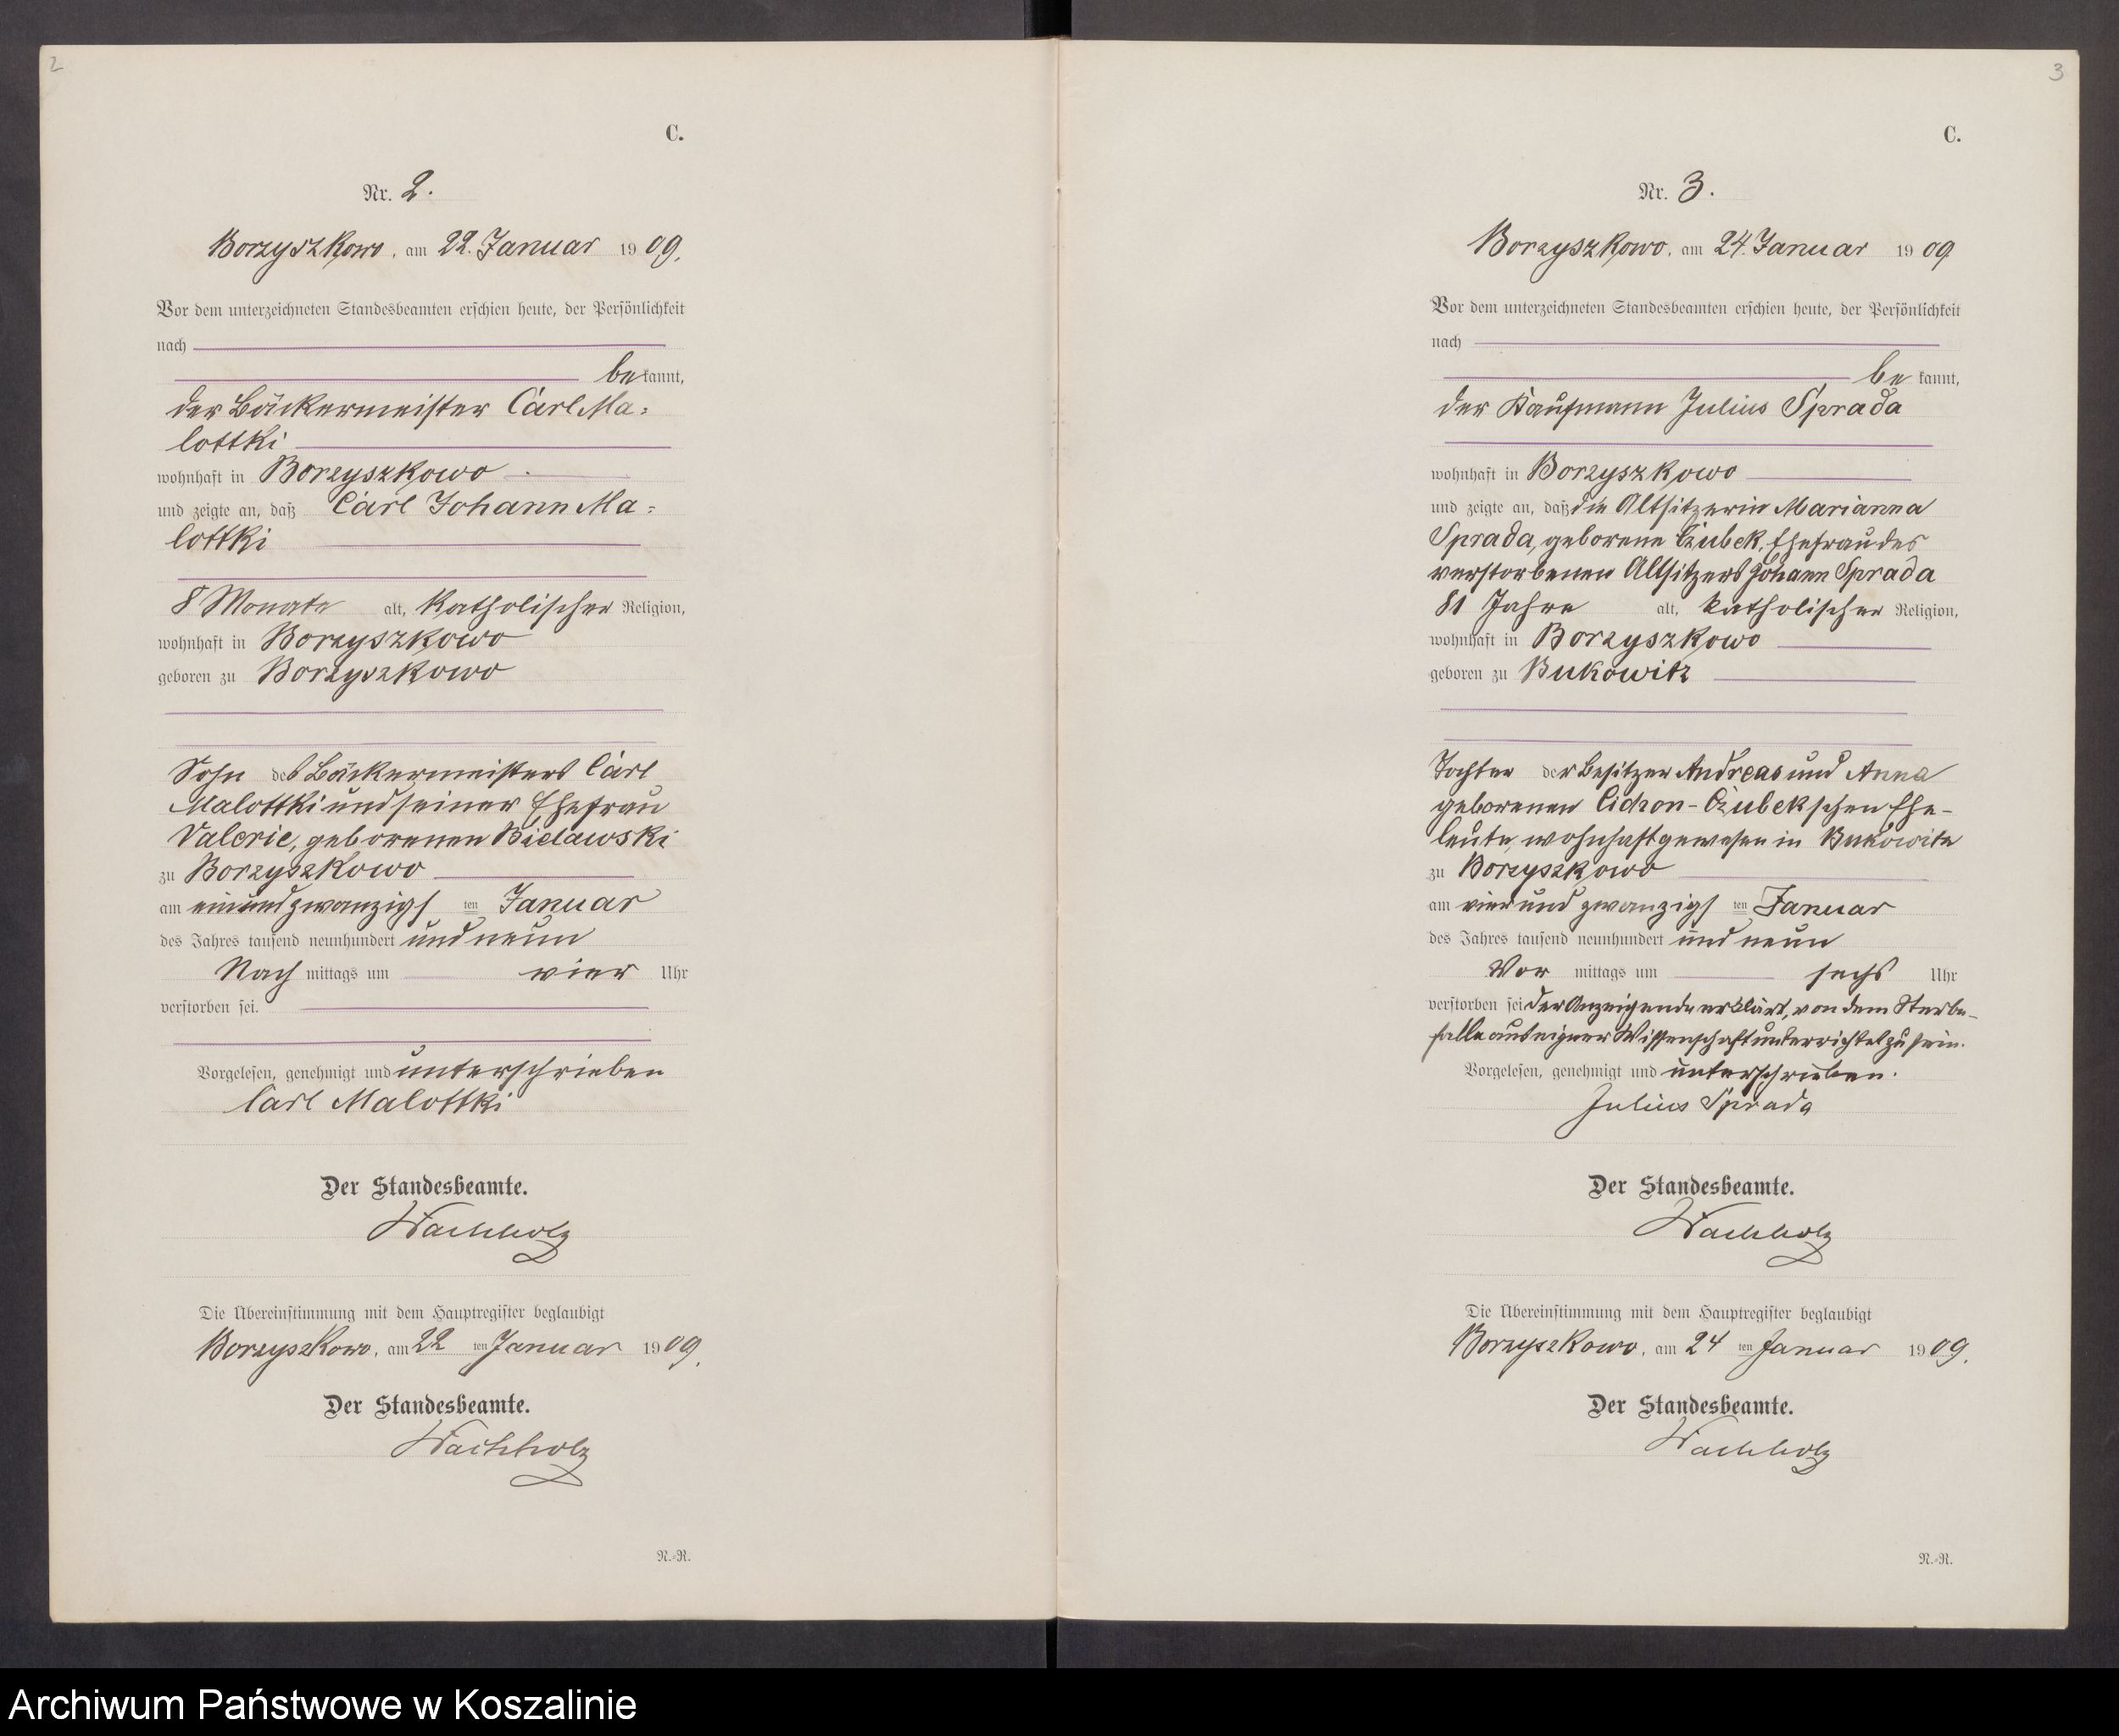 2
C.
Nr. 2.
Borzyszkowo, am 22. Januar 1909.
Vor dem unterzeichneten Standesbeamten erschien heute, der Persönlichkeit
nach
bekannt,
der Bäckermeister Carl Ma=
lottki
wohnhaft in Borzyszkowo
und zeigte an, daß Carl Johann Ma=
lottki
8 Monate alt, katholischer Religion,
wohnhaft in Borzyszkowo
geboren zu Borzyszkowo
Sohn des Bäckermeisters Carl
Malottki und seiner Ehefrau
Valerie, geborenen Bielawski
zu Borzyszkowo
am einundzwanzigsten Januar
des Jahres tausend neunhundert und neun
Nachmittags um vier Uhr
verstorben sei.
Vorgelesen, genehmigt und unterschrieben
Carl Malottki
Der Standesbeamte.
Wachholz
Die Übereinstimmung mit dem Hauptregister beglaubigt
Borzyszkowo, am 22 ten Januar 1909.
Der Standesbeamte.
Wachholz
N.-R.
3
C.
Nr. 3.
Borzyszkowo, am 24. Januar 1909
Vor dem unterzeichneten Standesbeamten erschien heute, der Persönlichkeit
nach
bekannt,
der Kaufmann Julius Sprada
wohnhaft in Borzyszkowo
und zeigte an, daß die Altsitzerin Marianna
Sprada, geborene Czubek, Ehefrau des
verstorbenen Altsitzers Johann Sprada
81 Jahre alt, katholischer Religion,
wohnhaft in Borzyszkowo
geboren zu Bukowitz
Tochter der Besitzer Andreas und Anna
geborenen Cichon-Czubekschen Ehe-
leute, wohnhaft gewesen in Bukowitz
zu Borzyszkowo
am vierundzwanzigsten Januar
des Jahres tausend neunhundert und neun
Vormittags um sechs Uhr
verstorben sei der Anzeigende erklärt, von dem Sterbe-
falle aus eigner Wissenschaft unterrichtet zu sein.
Vorgelesen, genehmigt und unterschrieben.
Julius Sprada
Der Standesbeamte.
Wachholz
Die Übereinstimmung mit dem Hauptregister beglaubigt
Borzyszkowo, am 24 ten Januar 1909.
Der Standesbeamte.
Wachholz
N.-R.
Archiwum Państwowe w Koszalinie